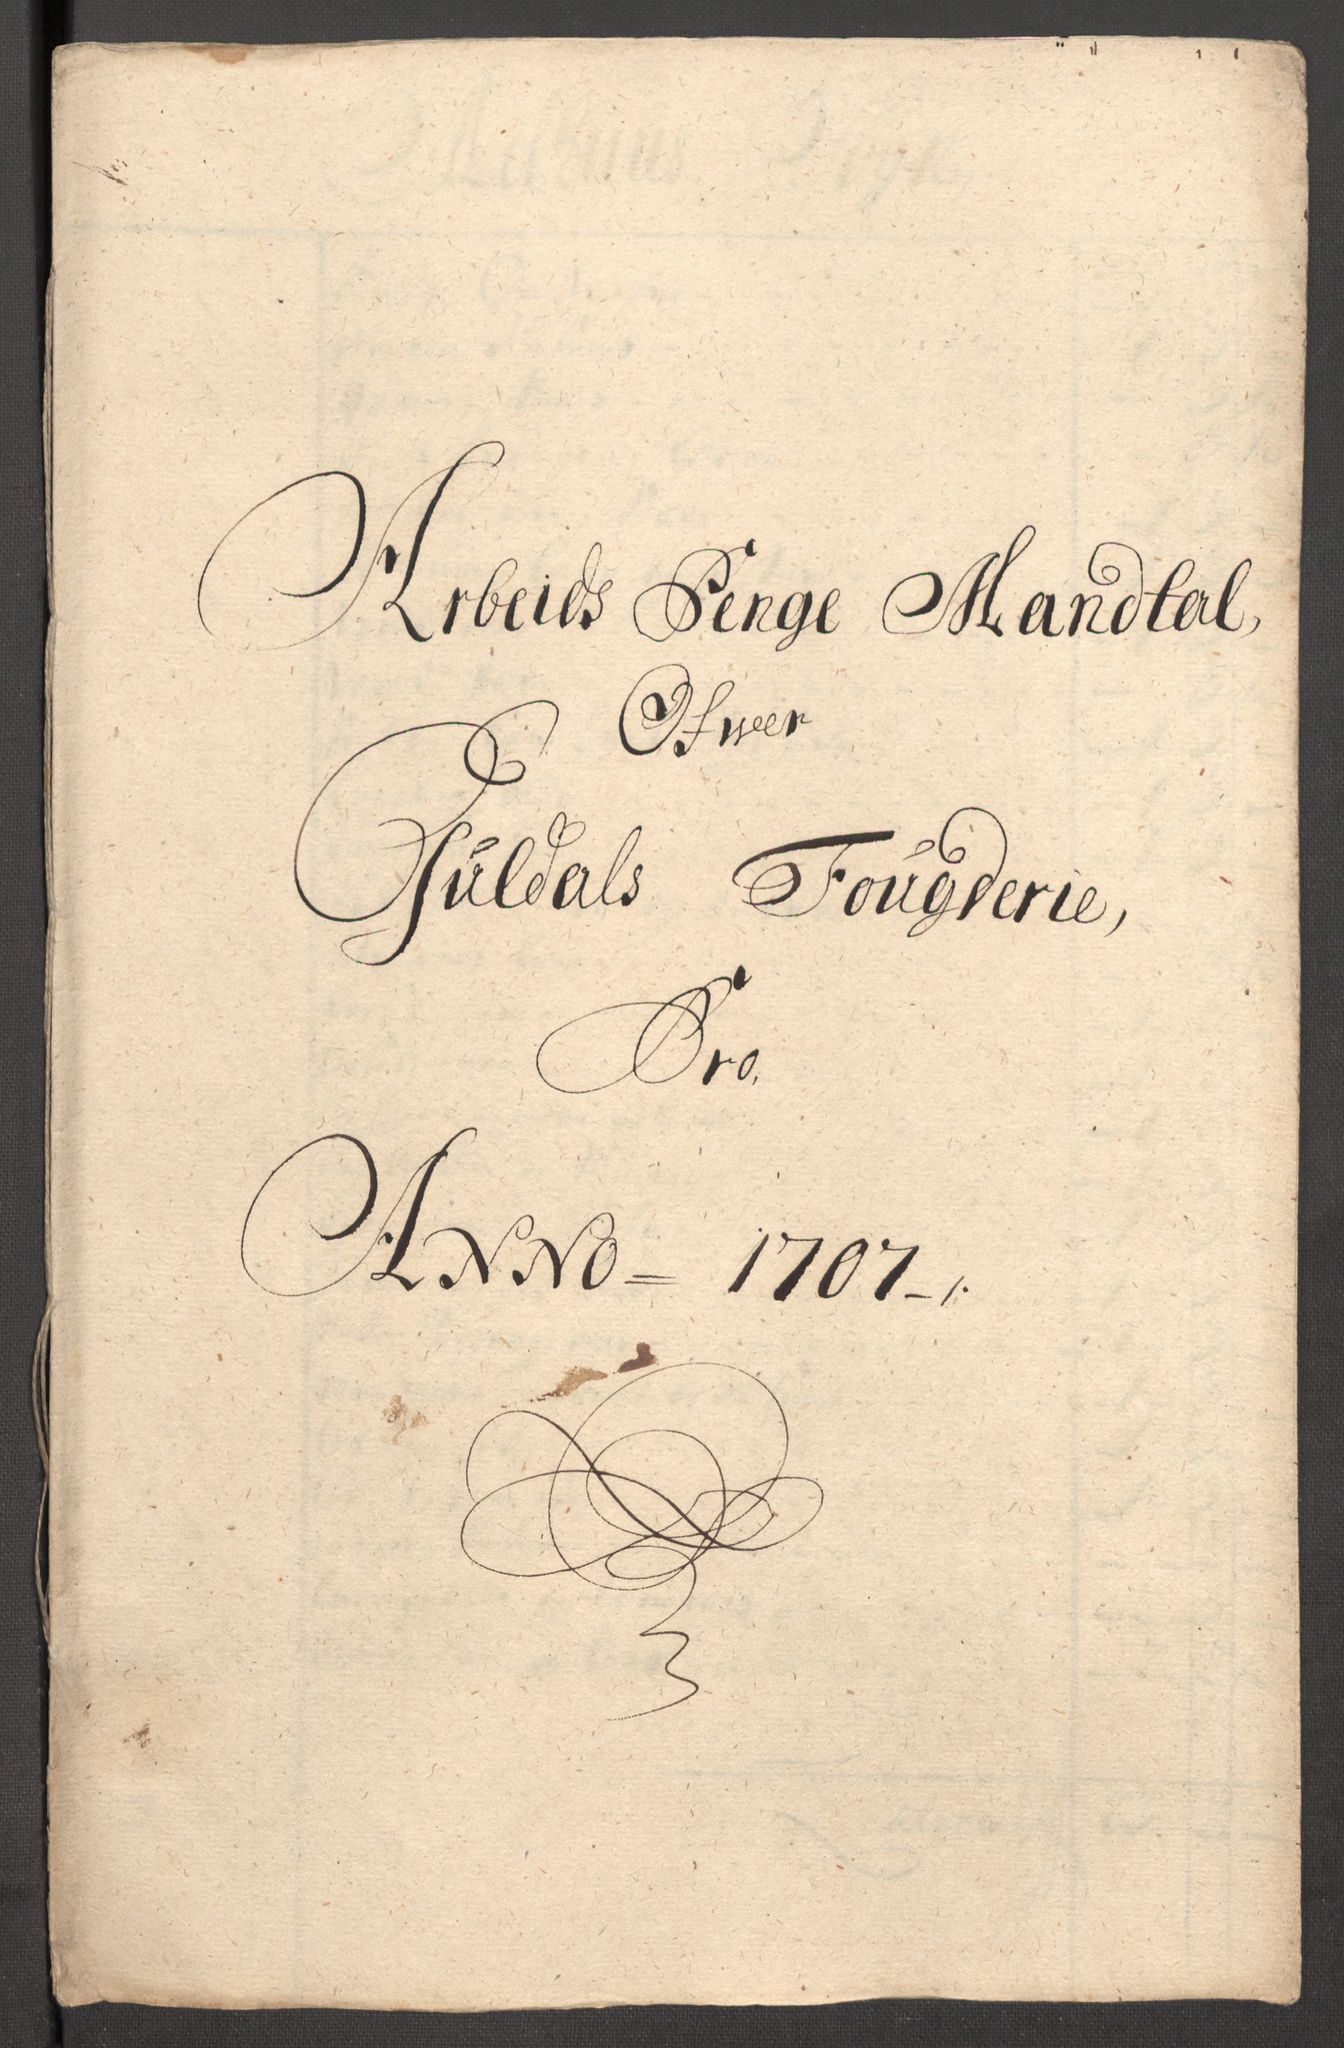 Arbeids Penge Mandtal,
Ofwer
Guldals Fougderie,
Pro.
ANNO = 1707_/.